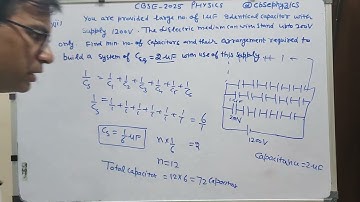 CBSE-2025 PHYSICS @cbsephyzics
You are provided large no of 1μF identical capacitor with
supply 1200V. The dielectric medium can withstand upto 200V
only Find min no of capacitors and their arrangement required to
build a system of Ceq = 2μF with use of this supply
1/Cs = 1/C1 + 1/C2 + 1/C3 + 1/C4 + 1/C5 + 1/C6
1/Cs = 1/1 + 1/1 + 1/1 + 1/1 + 1/1 + 1/1 = 6/1
Cs = 1/6 μF
n × 1/6 = 2
n = 12
Total capacitor = 12×6 = 72 capacitors
200V
1200V
Capacitance = 2μF